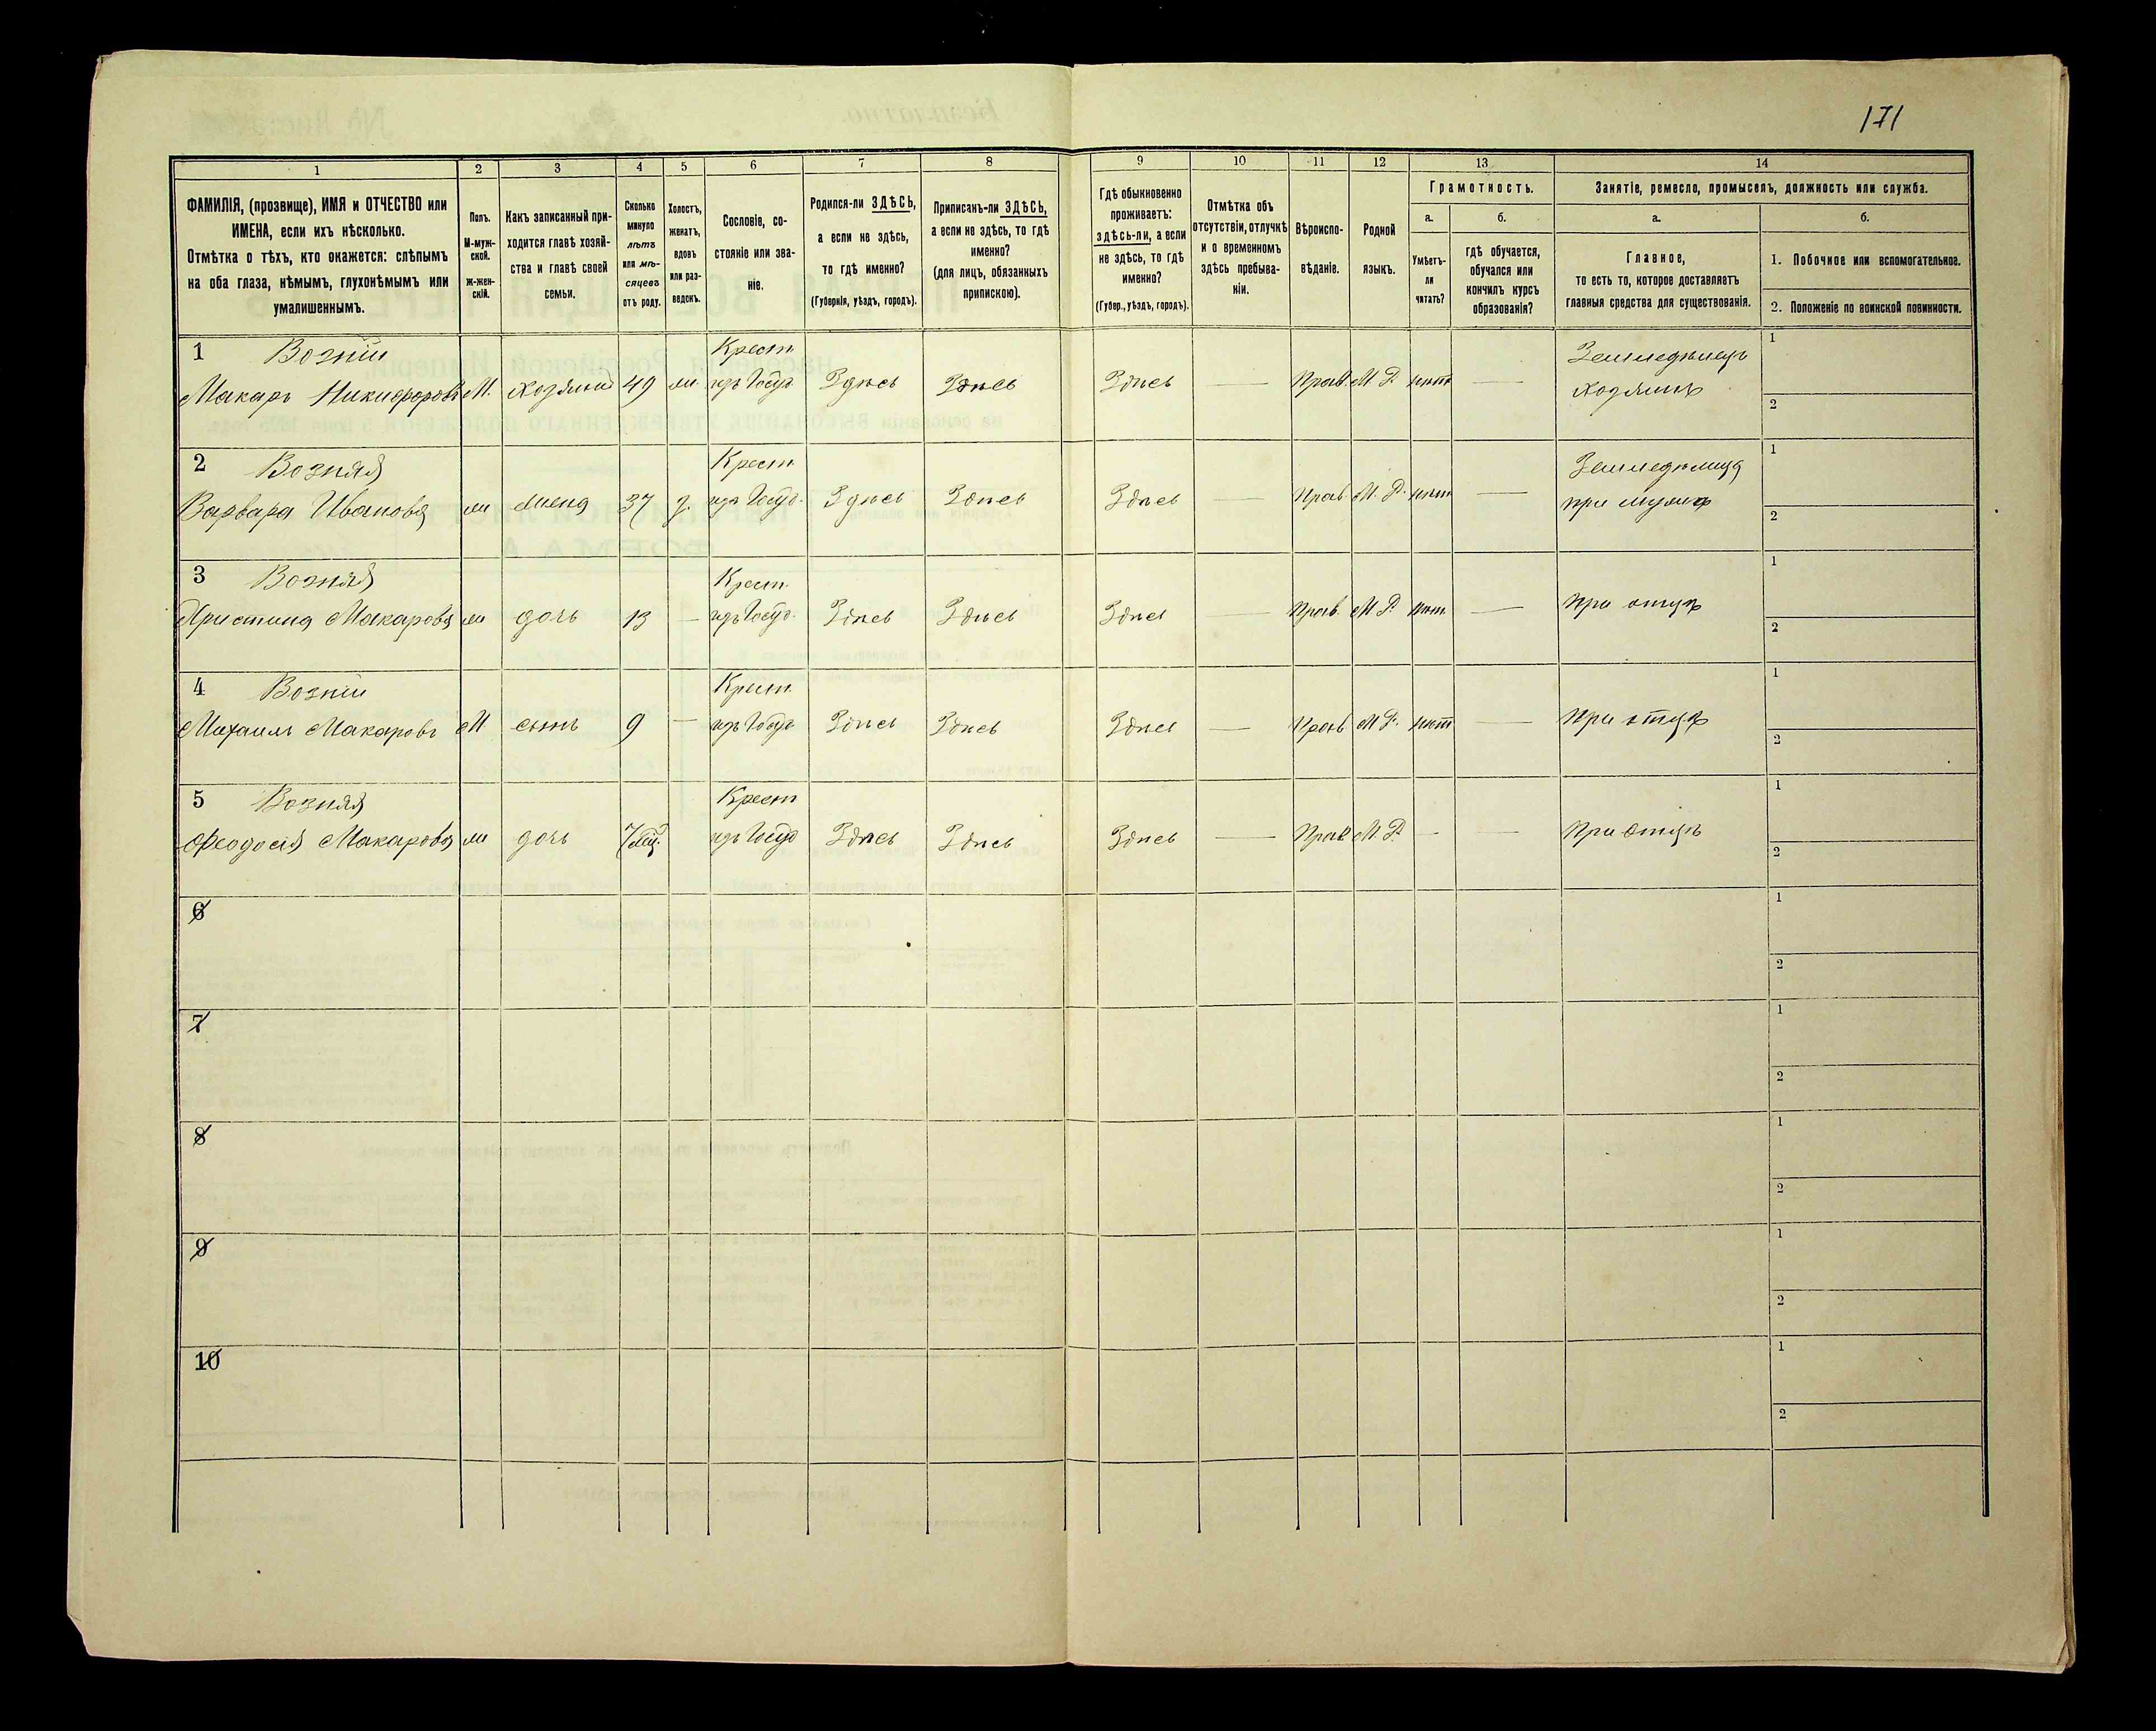 171
1
2
3
4
5
6
7
8
9
10
11
12
13
14
ФАМИЛІЯ, (прозвище), ИМЯ и ОТЧЕСТВО или
ИМЕНА, если ихъ нѣсколько.
Отмѣтка о тѣхъ, кто окажется: слѣпымъ
на оба глаза, нѣмымъ, глухонѣмымъ или
умалишеннымъ.
Полъ.
М-муж-
ской.
ж-жен-
скій.
Какъ записанный при-
ходится главѣ хозяй-
ства и главѣ своей
семьи.
Сколько
минуло
лѣтъ
или мѣ-
сяцевъ
отъ роду.
Холостъ,
женатъ,
вдовъ
или раз-
веденъ.
Сословіе, со-
стояніе или зва-
ніе.
Родился-ли ЗДѢСЬ,
а если не здѣсь,
то гдѣ именно?
(Губернія, уѣздъ, городъ).
Приписанъ-ли ЗДѢСЬ,
а если не здѣсь, то гдѣ
именно?
(для лицъ, обязанныхъ
припискою).
Гдѣ обыкновенно
проживаетъ:
здѣсь-ли, а если
не здѣсь, то гдѣ
именно?
(Губер., уѣздъ, городъ).
Отмѣтка объ
отсутствіи, отлучкѣ
и о временномъ
здѣсь пребыва-
ніи.
Вѣроиспо-
вѣданіе.
Родной
языкъ.
Грамотность.
а.
б.
Умѣетъ-
ли
читать?
гдѣ обучается,
обучался или
кончилъ курсъ
образованія?
Занятіе, ремесло, промыселъ, должность или служба.
а.
б.
Главное,
то есть то, которое доставляетъ
главныя средства для существованія.
1. Побочное или вспомогательное.
2. Положеніе по воинской повинности.
1 Возній Крест. Земледѣлецъ 1
Макаръ Никифоровъ М. хозяинъ 49 ж изъ Госуд Здѣсь Здѣсь Здѣсь — Прав. М. Р. нѣтъ — хозяинъ 2
2 Возняя Крест. Земледѣлица 1
Варвара Иванова ж жена 37 з. изъ Госуд. Здѣсь Здѣсь Здѣсь — Прав. М. Р. нѣтъ — при мужѣ 2
3 Возняя Крест. 1
Христина Макарова ж дочь 13 — изъ Госуд. Здѣсь Здѣсь Здѣсь — Прав. М Р. нѣт. — при отцѣ 2
4 Возній Крест. 1
Михаилъ Макаровъ М сынъ 9 — изъ Госуд Здѣсь Здѣсь Здѣсь — Прав М Р. нѣт — при отцѣ 2
5 Возняя Крест 1
Феодосія Макарова ж дочь 7 мѣц. изъ Госуд Здѣсь Здѣсь Здѣсь — Прав М. Р. — — при отцѣ 2
6 1
2
7 1
2
8 1
2
9 1
2
10 1
2